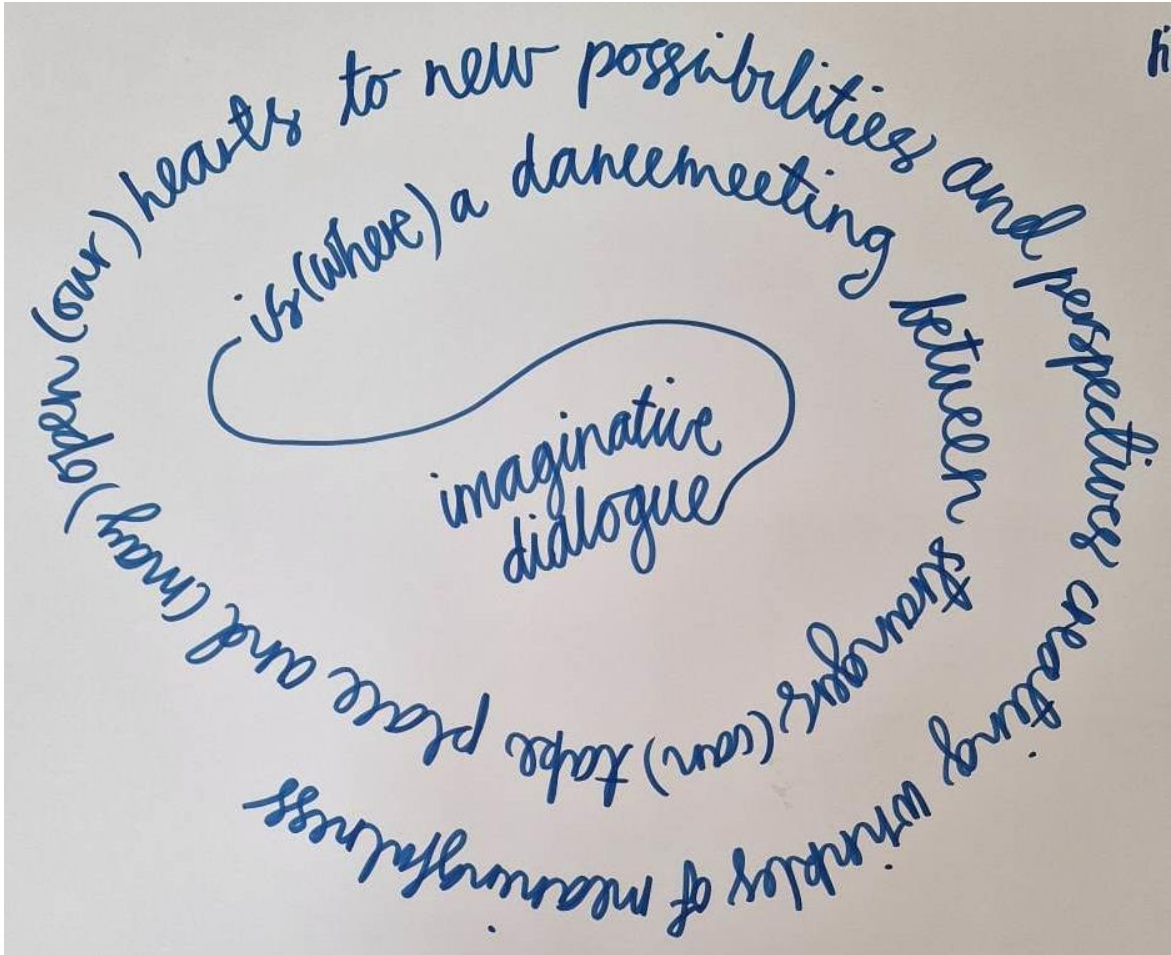 imaginative
dialogue
is (where) a dancemeeting between strangers (can) take place and (may) open (our) hearts to new possibilities and perspectives creating whirples of meaningfulness